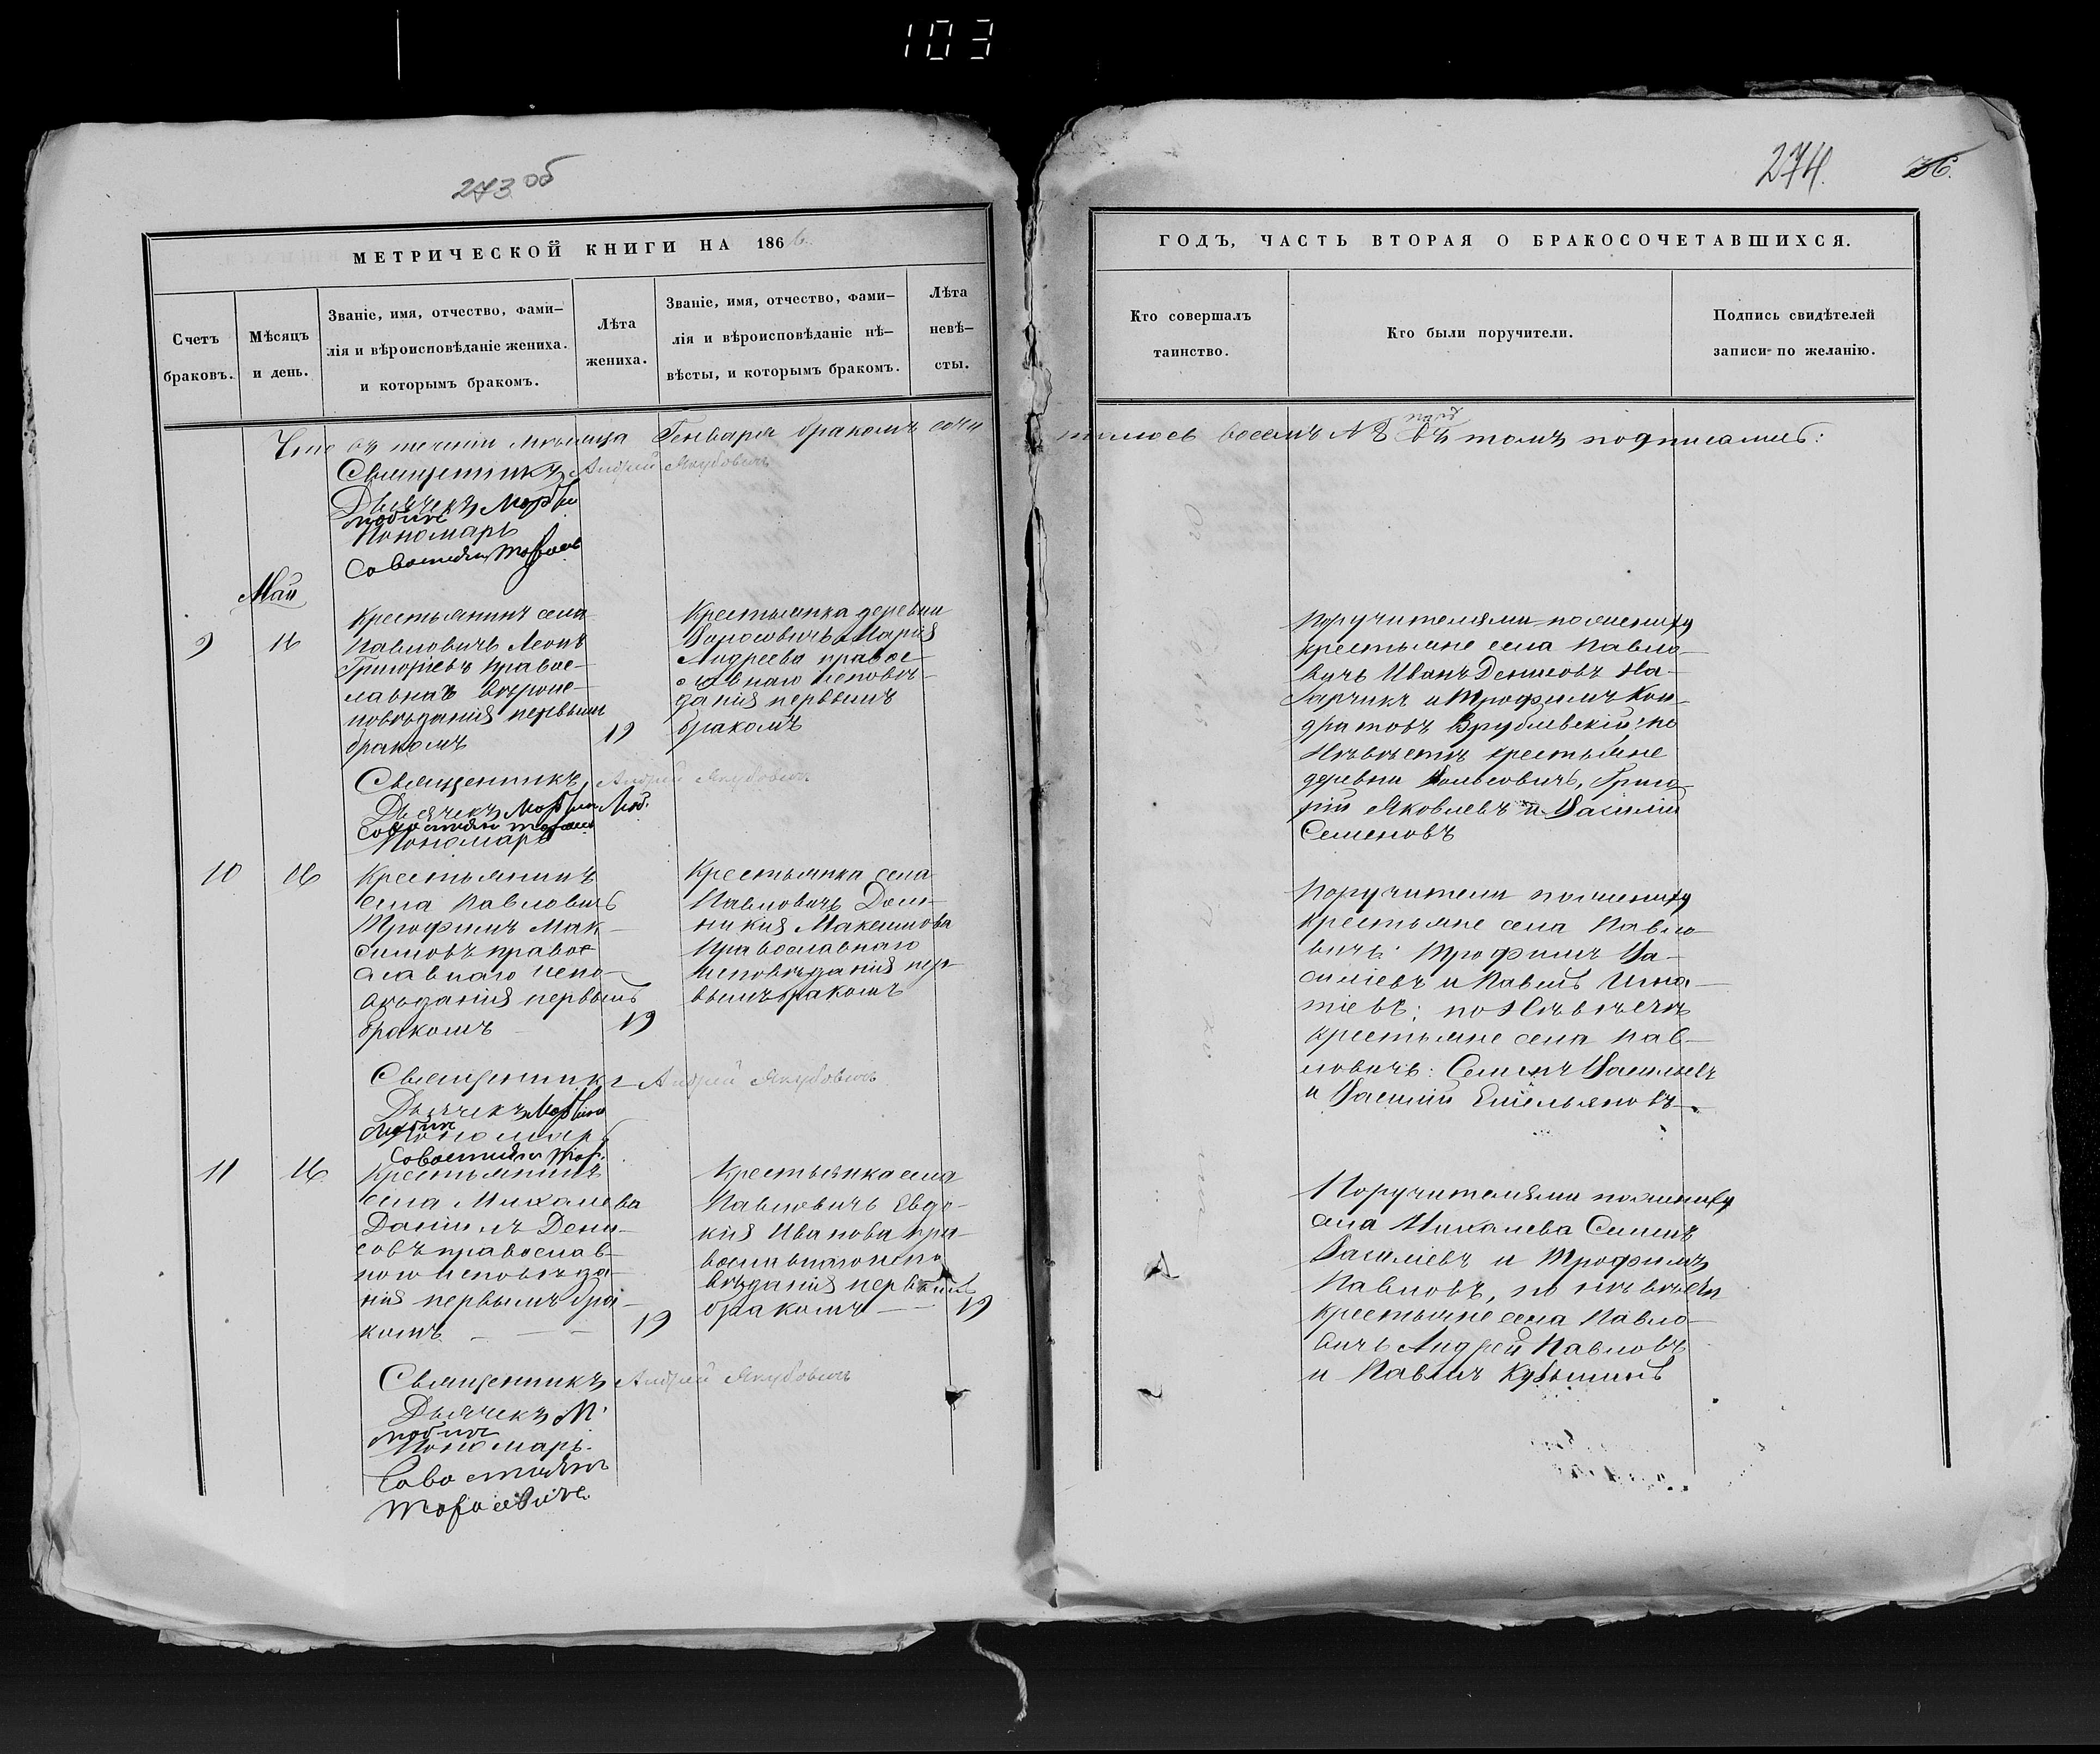 103
273 об
274.
36.
МЕТРИЧЕСКОЙ КНИГИ НА 1866.
Счетъ
браковъ.
Мѣсяцъ
и день.
Званіе, имя, отчество, фами–
лія и вѣроисповѣданіе жениха.
и которымъ бракомъ.
Лѣта
жениха.
Званіе, имя, отчество, фами–
лія и вѣроисповѣданіе нѣ–
вѣсты, и которымъ бракомъ.
Лѣта
невѣ–
сты.
ГОДЪ, ЧАСТЬ ВТОРАЯ О БРАКОСОЧЕТАВШИХСЯ.
Кто совершалъ
таинство.
Кто были поручители.
Подпись свидѣтелей
записи по желанію.
Что въ теченіи мѣсяца Генваря бракомъ соче
талось восемь № 8 въ томъ подписались:
Священникъ Андрей Якубовичъ
Дьячекъ
Пономарь
Май
9
16
Крестьянинъ села
Павловичъ Леонъ
Григоріевъ правос–
лавнаго вѣроис–
повѣданія первымъ
бракомъ
19
Крестьянка деревни
Марія
Андреева правос–
лавнаго исповѣ–
данія первымъ
бракомъ
Поручителями по жениху
крестьяне села Павло–
вичъ Иванъ Денисовъ
и Трофимъ Кон–
дратовъ Врублевскій: по
Невѣстѣ крестьяне
деревни Григо–
рій Яковлевъ и Василій
Семеновъ
Священникъ Андрей Якубовичъ
Дьячекъ
Пономарь
10
16
Крестьянинъ
села Павловичъ
Трофимъ Мак–
симовъ правос–
лавнаго испо–
вѣданія первымъ
бракомъ
19
Крестьянка села
Павловичъ Дом–
никія Максимова
Православнаго
исповѣданія пер–
вымъ бракомъ
Поручители по жениху
крестьяне села Павло–
вичъ: Трофимъ Ва–
силіевъ и Павелъ Игна–
тіевъ; по Невѣстѣ
крестьяне села Пав–
ловичъ: Семенъ Василіевъ
и Василій Емельяновъ
Священникъ Андрей Якубовичъ
Дьячекъ
Пономарь
11
16
Крестьянинъ
села Михалева
Даніилъ Дени–
совъ православ–
ного исповѣда–
нія первымъ бра–
комъ
19
Крестьянка села
Павловичъ Евдо–
кія Иванова пра–
вославнаго испо
вѣданія первымъ
бракомъ
19
Поручителями по жениху
села Михалева Семенъ
Василіевъ и Трофимъ
Павловъ, по невѣстѣ
крестьяне села Павло–
вичъ Андрей Павловъ
и Павелъ Кузьминъ
Священникъ Андрей Якубовичъ
Дьячекъ М.
Пономарь